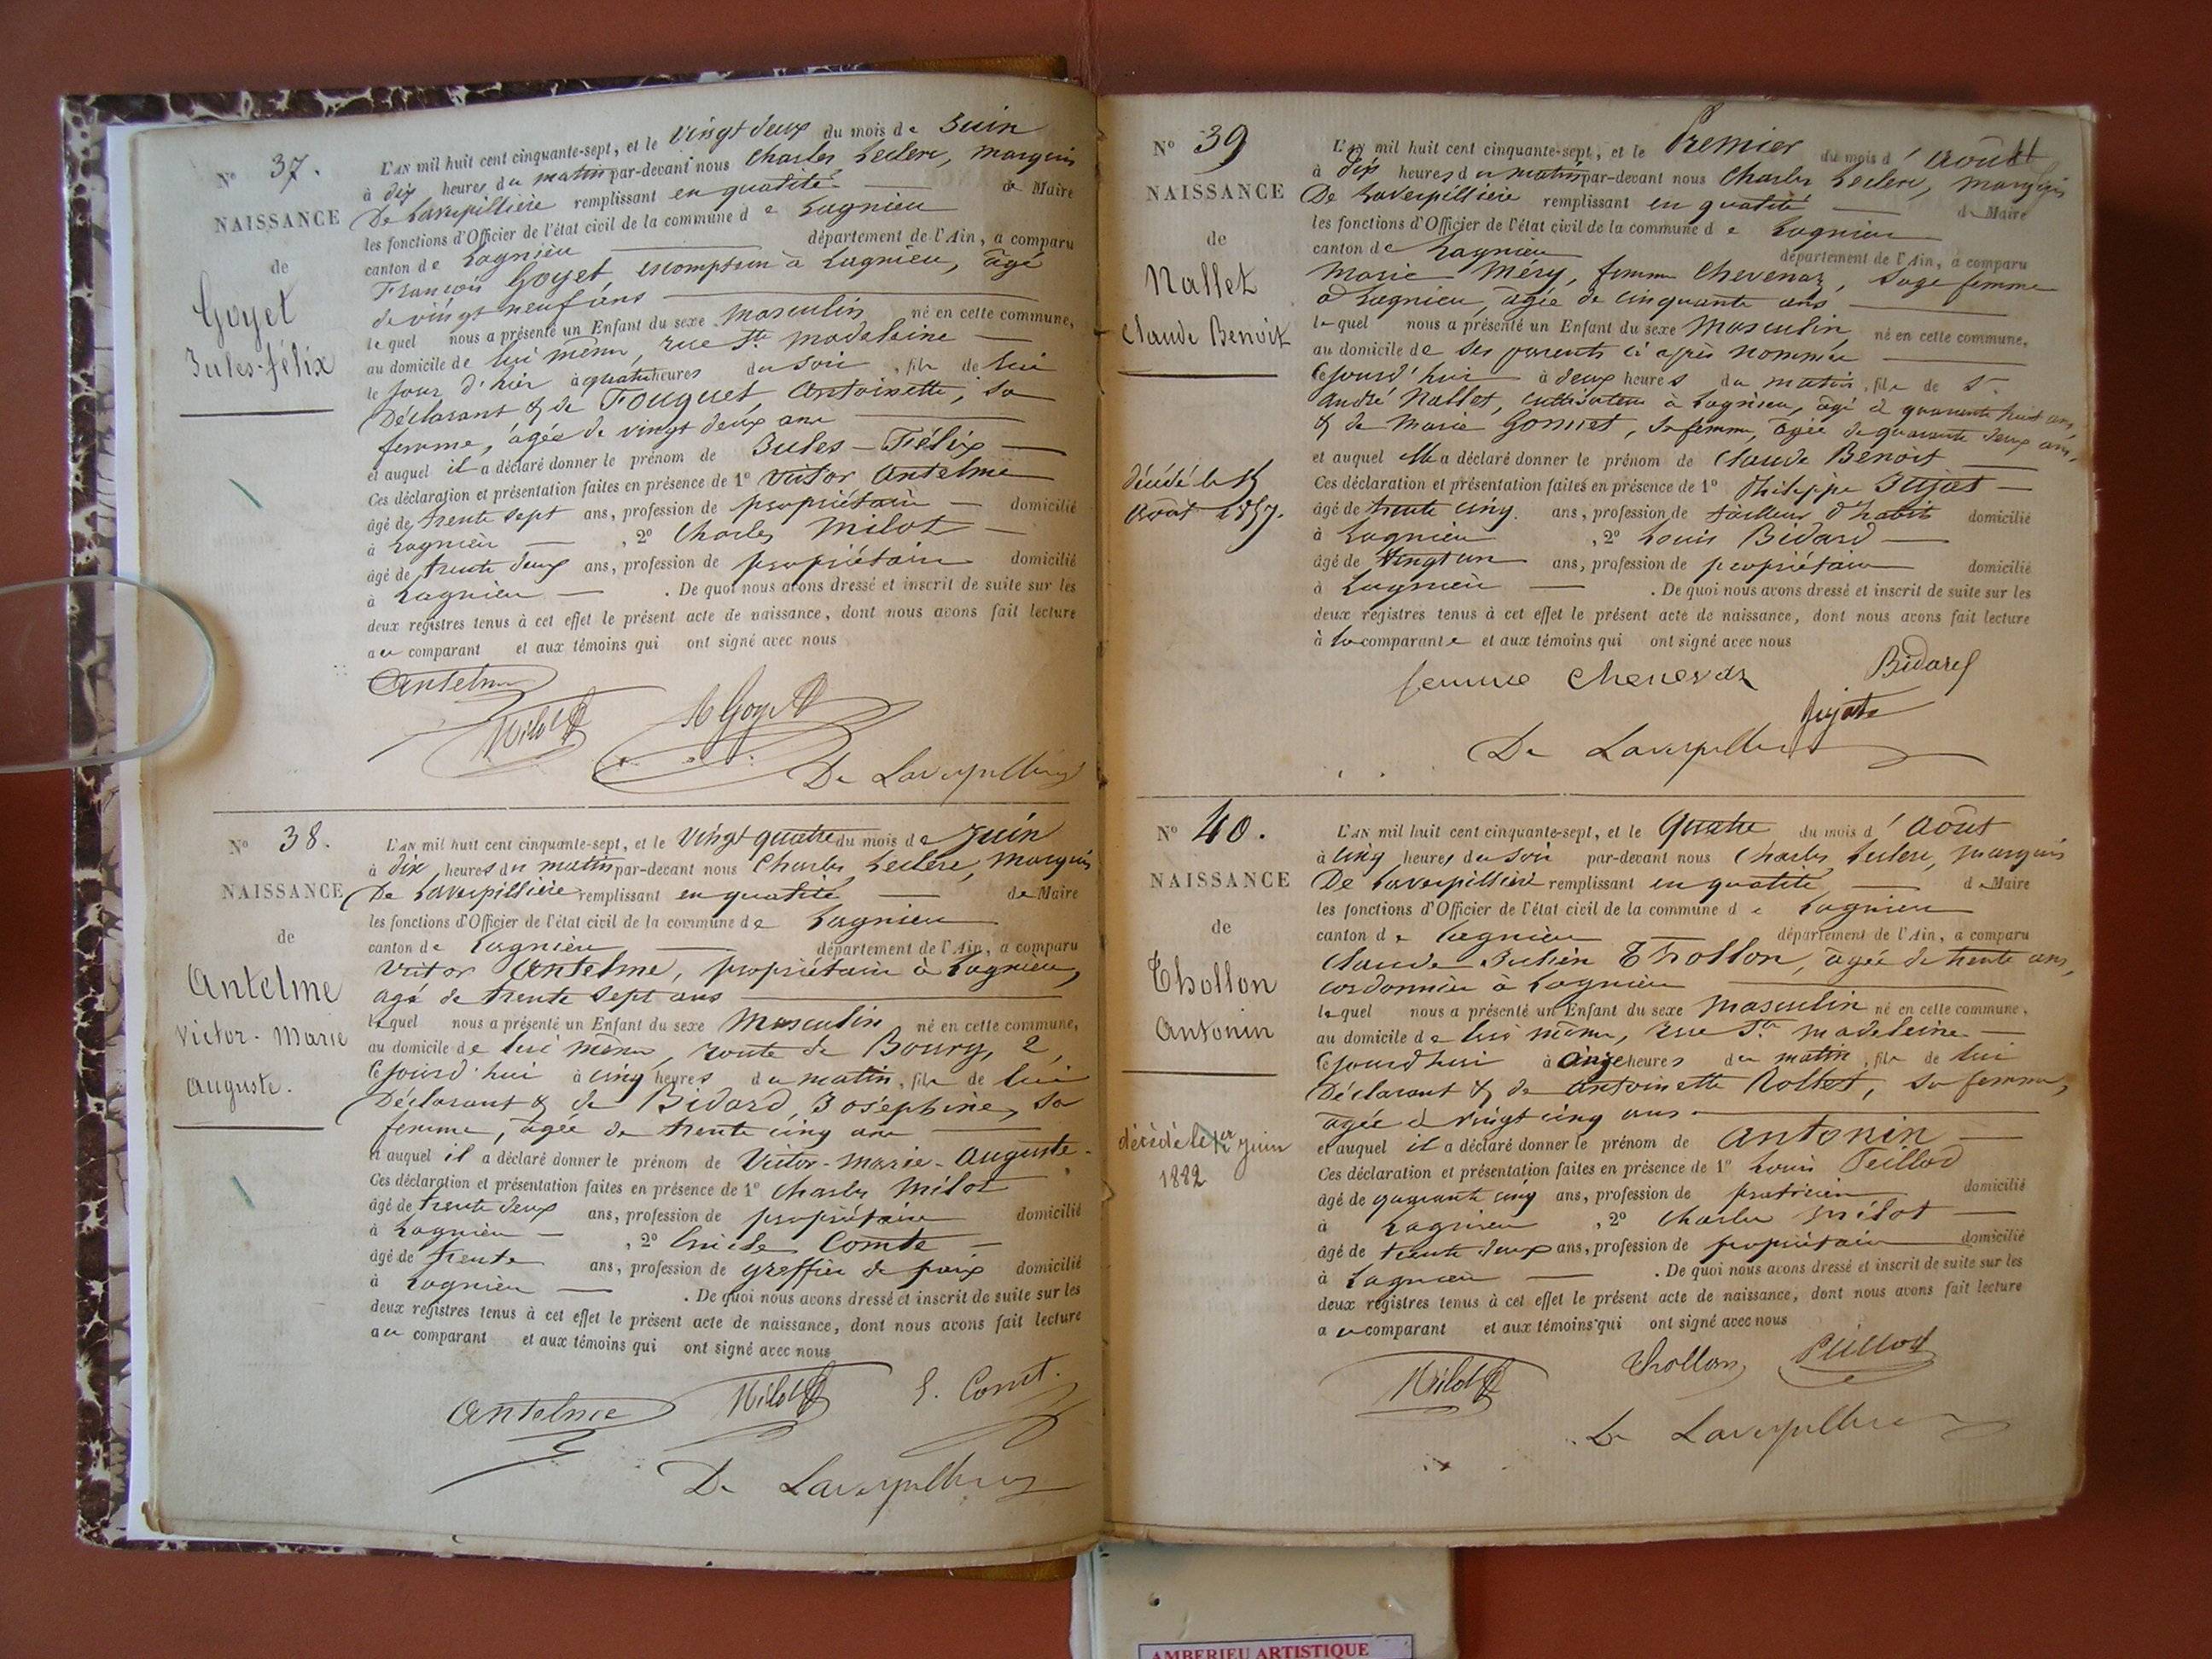 N° 37.
NAISSANCE
de
Goyet
Jules-félix
L'AN mil huit cent cinquante-sept, et le vingt deux du mois de Juin
à dix heures du matin par-devant nous Charles Leclerc, Marquis
De Laverpillière remplissant en qualité de Maire
les fonctions d'Officier de l'état civil de la commune de Lagnieu
canton de Lagnieu département de l'Ain, a comparu
François Goyet escompteur à Lagnieu, âgé
de vingt neuf ans
lequel nous a présenté un Enfant du sexe masculin né en cette commune,
au domicile de lui même, rue Ste madeleine
le jour d'hier à quatre heures du soir, fils de lui
Déclarant & de Fouguet, Antoinette, sa
femme, âgée de vingt deux ans
et auquel il a déclaré donner le prénom de Jules-Félix
Ces déclaration et présentation faites en présence de 1° Victor Antelme
âgé de trente sept ans, profession de propriétaire domicilié
à Lagnieu, 2° Charles Milot
âgé de trente deux ans, profession de propriétaire domicilié
à Lagnieu. De quoi nous avons dressé et inscrit de suite sur les
deux registres tenus à cet effet le présent acte de naissance, dont nous avons fait lecture
au comparant et aux témoins qui ont signé avec nous
Antelme
Milot Goyet
De Laverpilliere
N° 38.
NAISSANCE
de
Antelme
Victor-Marie
Auguste.
L'AN mil huit cent cinquante-sept, et le vingt quatre du mois de Juin
à dix heures du matin par-devant nous Charles Leclerc, Marquis
De Laverpillière remplissant en qualité de Maire
les fonctions d'Officier de l'état civil de la commune de Lagnieu
canton de Lagnieu département de l'Ain, a comparu
Victor Antelme, propriétaire à Lagnieu,
âgé de trente sept ans
lequel nous a présenté un Enfant du sexe Masculin né en cette commune,
au domicile de lui même, route de Bourg, 2,
Cejourd'hui à cinq heures du matin, fils de lui
Déclarant & de Bidard, Joséphine, sa
femme, âgée de trente cinq ans
et auquel il a déclaré donner le prénom de Victor-Marie-Auguste
Ces déclaration et présentation faites en présence de 1° Charles Milot
âgé de trente deux ans, profession de propriétaire domicilié
à Lagnieu, 2° Comte
âgé de trente ans, profession de greffier de paix domicilié
à Lagnieu. De quoi nous avons dressé et inscrit de suite sur les
deux registres tenus à cet effet le présent acte de naissance, dont nous avons fait lecture
au comparant et aux témoins qui ont signé avec nous
Antelme Milot E. Comt.
De Laverpilliere
N° 39
NAISSANCE
de
Nallet
Claude Benoit
décédé le 15
Août 1857.
L'AN mil huit cent cinquante-sept, et le Premier du mois d'Août
à dix heures du matin par-devant nous Charles Leclerc, Marquis
De Laverpillière remplissant en qualité de Maire
les fonctions d'Officier de l'état civil de la commune de Lagnieu
canton de Lagnieu département de l'Ain, a comparu
Marie Méry, femme Chevenaz, Sage femme
à Lagnieu, âgée de cinquante ans
lequel nous a présenté un Enfant du sexe Masculin, né en cette commune,
au domicile de ses parents ci après nommés
Cejourd'hui à deux heures du matin, fils de Sr
André Nallet, cultivateur à Lagnieu, âgé de quarante huit ans,
& de Marie Gonnet, sa femme, âgée de quarante deux ans,
et auquel elle a déclaré donner le prénom de Claude Benoit
Ces déclaration et présentation faites en présence de 1° Philippe Jujat
âgé de trente cinq ans, profession de tailleur d'habits domicilié
à Lagnieu, 2° Louis Bidard
âgé de vingt un ans, profession de propriétaire domicilié
à Lagnieu. De quoi nous avons dressé et inscrit de suite sur les
deux registres tenus à cet effet le présent acte de naissance, dont nous avons fait lecture
à la comparante et aux témoins qui ont signé avec nous
femme Chenevaz Bidard
Jujat
De Laverpilliere
N° 40.
NAISSANCE
de
Thollon
Antonin
décédé le 1er juin
1882
L'AN mil huit cent cinquante-sept, et le Quatre du mois d'Août
à cinq heures du soir par-devant nous Charles Leclerc, marquis
De Laverpillière remplissant en qualité de Maire
les fonctions d'Officier de l'état civil de la commune de Lagnieu
canton de Lagnieu département de l'Ain, a comparu
Claude Julien Thollon, âgée de trente ans,
cordonnier à Lagnieu
lequel nous a présenté un Enfant du sexe Masculin né en cette commune,
au domicile de lui même, rue Ste madeleine
Cejourd'hui à onze heures du matin, fils de lui
Déclarant & de Antoinette Rollet, sa femme,
âgée de vingt cinq ans
et auquel il a déclaré donner le prénom de Antonin
Ces déclaration et présentation faites en présence de 1° Louis Peillod
âgé de quarante cinq ans, profession de praticien domicilié
à Lagnieu, 2° Charles Milot
âgé de trente deux ans, profession de propriétaire domicilié
à Lagnieu. De quoi nous avons dressé et inscrit de suite sur les
deux registres tenus à cet effet le présent acte de naissance, dont nous avons fait lecture
au comparant et aux témoins qui ont signé avec nous
Milot Thollon Peillod
De Laverpilliere
AMBERIEU ARTISTIQUE